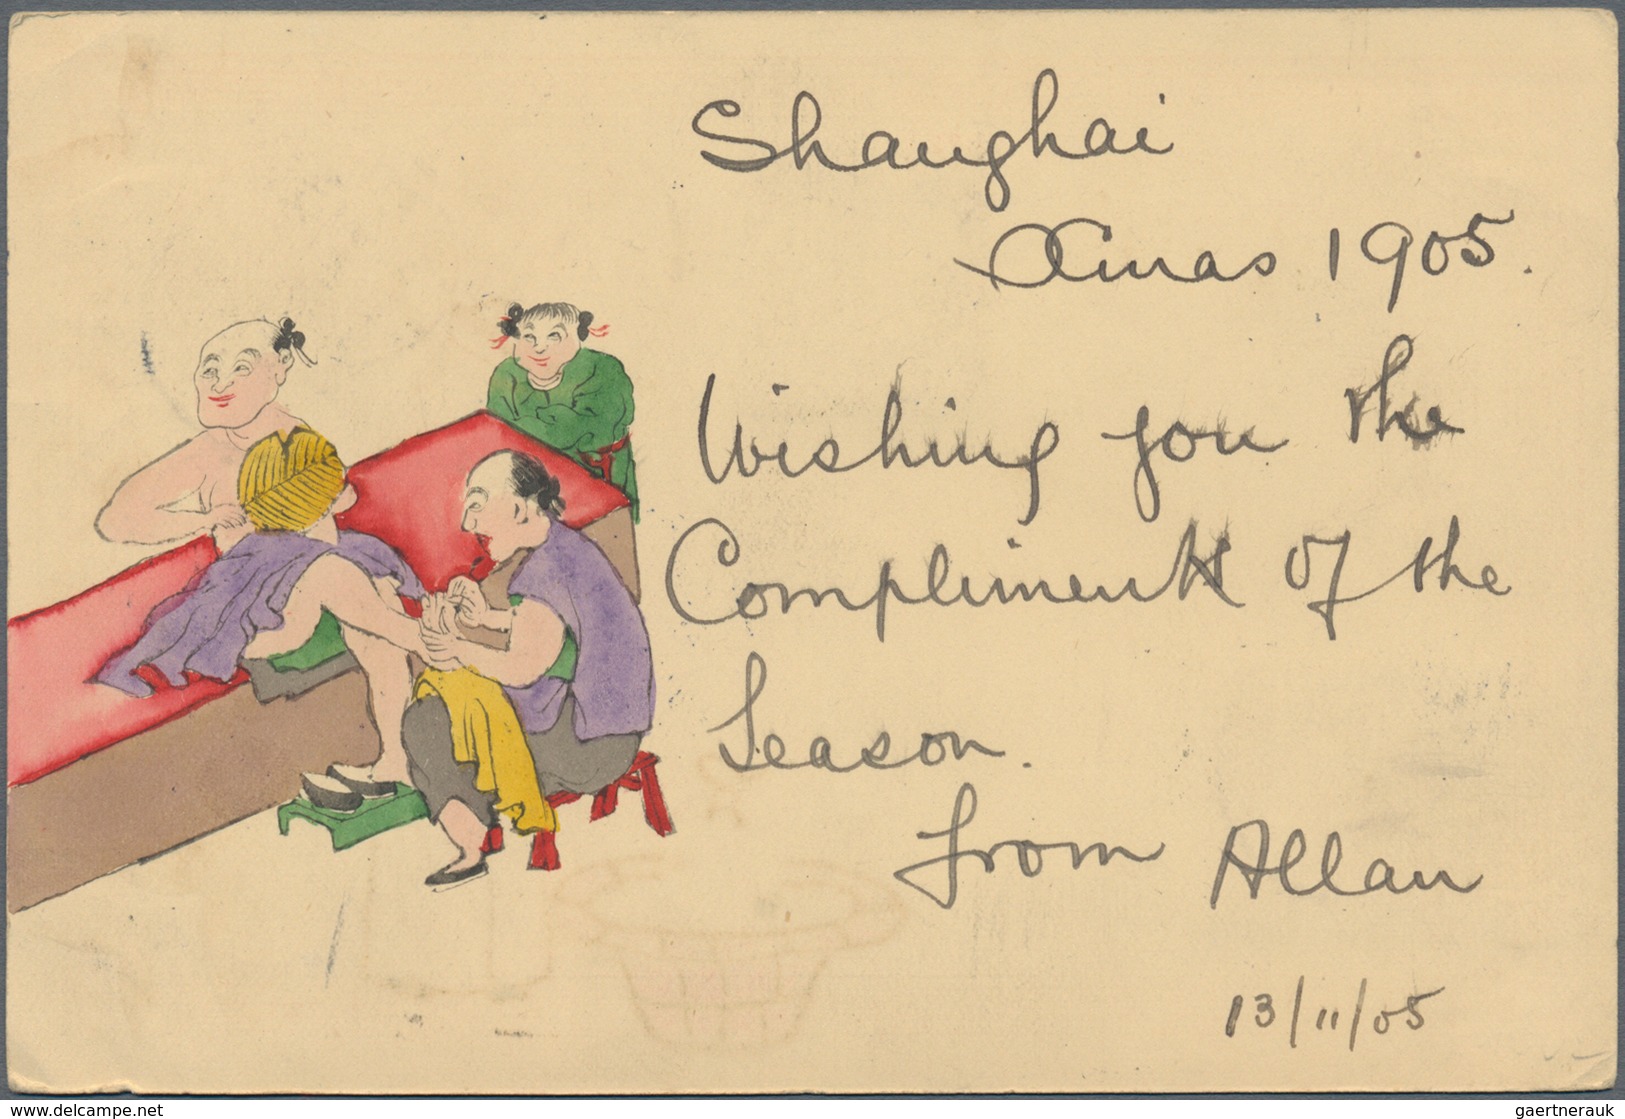 Shanghai
Xmas 1905.
Wishing you the
Compliments of the
Season.
from Allan
13/11/05
www.delcampe.net
gaertnerauk